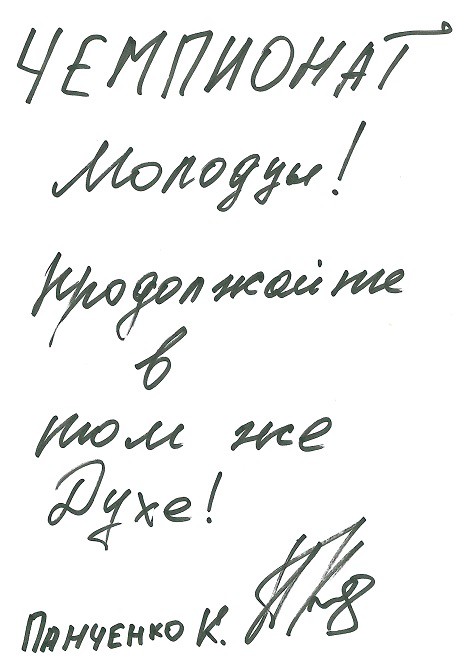 ЧЕМПИОНАТ
Молодцы!
Продолжайте
в
том же
Духе!
ПАНЧЕНКО К.